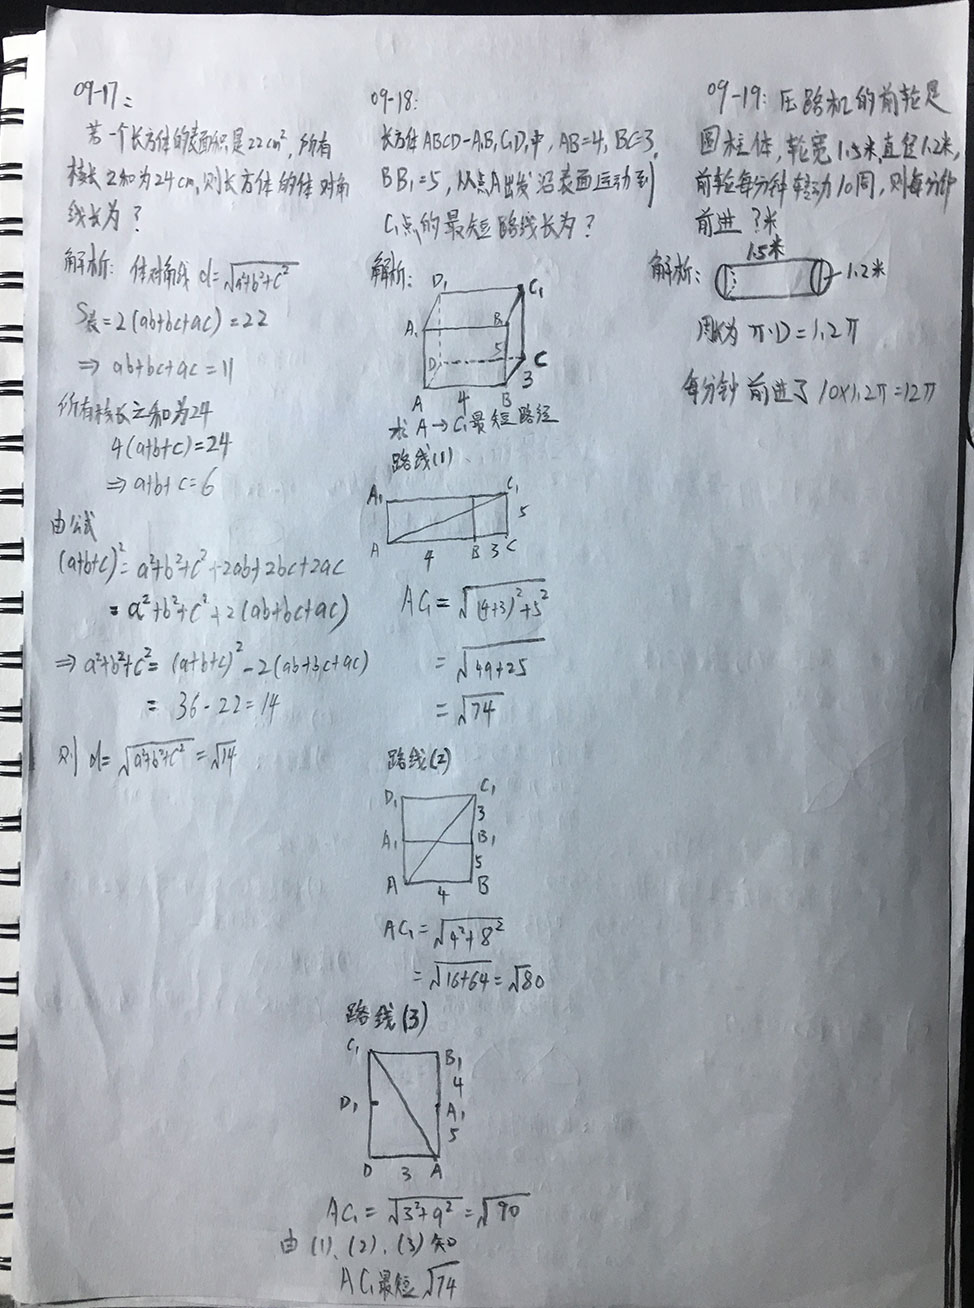 09-17:
若一个长方体的表面积是22cm²,所有
棱长之和为24cm,则长方体的体对角
线长为?
解析: 体对角线 d=√(a²+b²+c²)
S表=2(ab+bc+ac)=22
⇒ ab+bc+ac=11
所有棱长之和为24
4(a+b+c)=24
⇒ a+b+c=6
由公式
(a+b+c)²=a²+b²+c²+2ab+2bc+2ac
=a²+b²+c²+2(ab+bc+ac)
⇒ a²+b²+c²=(a+b+c)²-2(ab+bc+ac)
= 36-22=14
则 d=√(a²+b²+c²)=√14
09-18:
长方体ABCD-A₁B₁C₁D₁中, AB=4, BC=3,
BB₁=5, 从点A出发沿表面运动到
C₁点的最短路线长为?
解析:
D₁ C₁
A₁ B₁
5
D C
3
4
A B
求A→C₁最短路径
路线(1)
A₁ C₁
5
A 4 B 3 C
AC₁=√((4+3)²+5²)
=√(49+25)
=√74
路线(2)
D₁ C₁
3
A₁ B₁
5
A 4 B
AC₁=√(4²+8²)
=√(16+64)=√80
路线(3)
C₁ B₁
4
D₁ A₁
5
D 3 A
AC₁=√(3²+9²)=√90
由(1)、(2)、(3)知
AC₁最短√74
09-19: 压路机的前轮是
圆柱体,轮宽1.5米,直径1.2米,
前轮每分钟转动10周,则每分钟
前进 ?米
解析:
1.5米
1.2米
周长为 π·D=1.2π
每分钟前进了 10×1.2π=12π